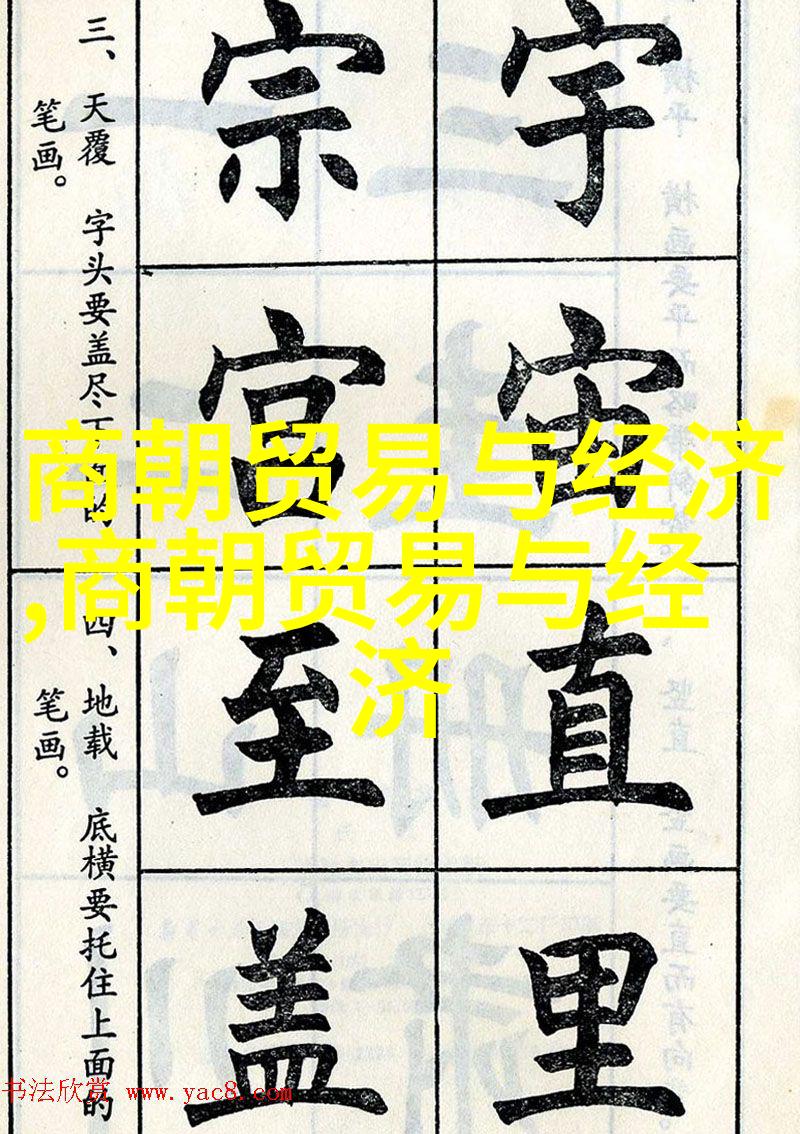 宇
宙
直
里
宗
宫
至
盖
三、天覆 字头要盖尽下面的
笔画。
四、地载 底横要托住上面的
笔画。
商朝贸易与经济
,商朝贸易与经
济
书法欣赏 www.yac8.com